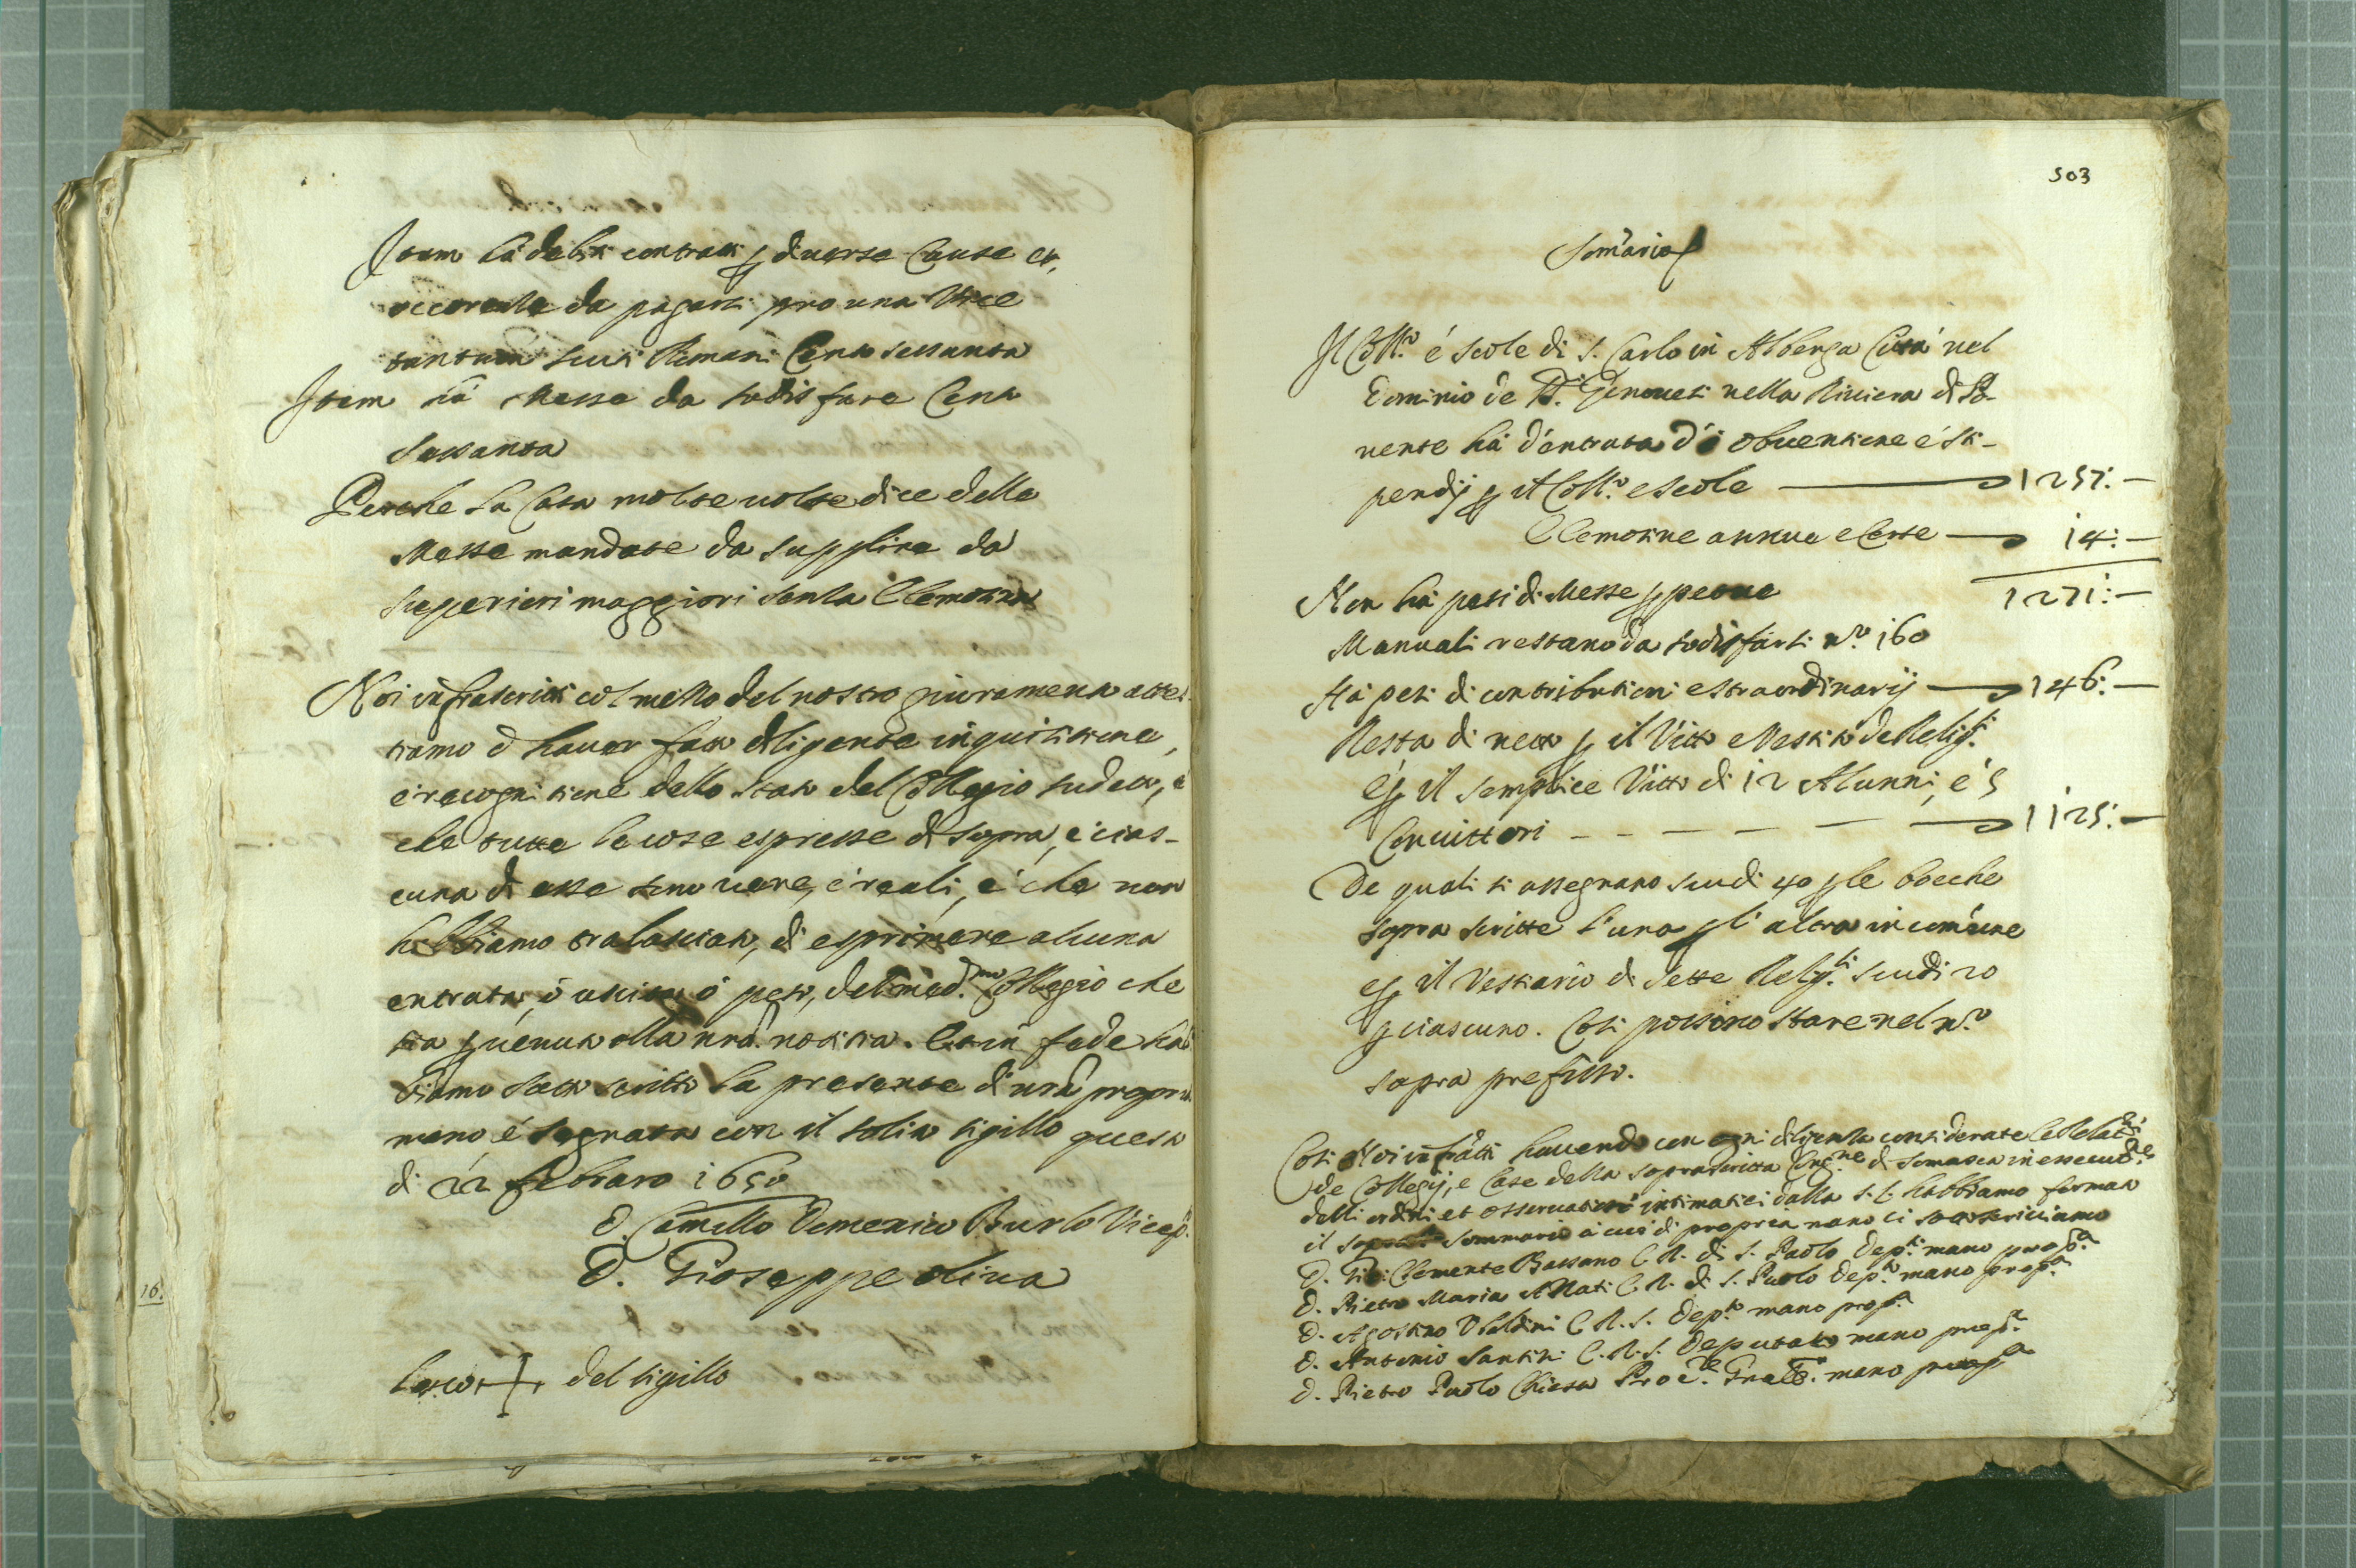 Item hà debiti contratti p diverse cause et,
occorenze da pagarsi pro una vice
tantum scuti Romani Cento sessanta
Item hà Messe da sodisfare Cento
sessanta
Perche la Casa molte uolte dice delle
Messe mandate da supplire da
superiori maggiori senza Elemosina
Noi infrascritti col mezzo del nostro giuramento attes-
tiamo d hauer fatto diligente inquisitione,
é recognitione dello stato del Collegio sudetto, é
che tutte le cose espresse di sopra, é cias-
cuna di esse sono uere, é reali, é che non
habbiamo tralasciato, di esprimere alcuna
entrata, ó uscita, ó peso, del med.mo Collegio che
sia puenuta alla nra notitia. Et in fede hab
biamo sotto scritto la presente di nra propria
mano, é segnata con il solito sigillo questo
di 22 febraro 1650
D. Camillo Domenico Burlo Vicep.
D. Gioseppe oliua
16.
Loco + del sigillo
503
Som̃ario
Il Coll.o é scole di S. Carlo in Albenga Cittá nel
Dominio de SS.ri Genouesi nella Riuiera di Po-
nente há d'entrata d'i obuentione é sti-
pendij p il Coll.o e scole 1257:—
Elemosine annue e certe 14:—
1271:—
Non há pesi di Messe ppetue
Manuali restano da sodisfarsi n.o 160
Há pesi di contributioni estraordinarij 146:—
Resta di netto p il Vitto e Vestito de Relig.si
é p il semplice Vitto di 12 Alunni, é 5
Conuittori 1125:—
De quali si assegnano scudi 40 p le bocche
sopra scritte l'una p l'altra in com̃une
e p il Vestiario di sette Relig.si scudi 20
p ciascuno. Cosi possono stare nel n.o
sopra prefisso.
Cosi Noi infra͠tti hauendo con ogni diligenza considerate le Relat.ni
de Collegij, e Case della soprascritta Cong.ne di Somasca in essecut.ne
delli ordini et osseruationi intimatici dalla S.C. habbiamo formato
il sopradº sommario á cui di propria mano ci sottoscriuiamo
D. Gio: Clemente Bassano C.R. di S. Paolo Dep.to mano prop.a
D. Pietro Maria Allati C.R. di S. Paolo Dep.to mano prop.a
D. Agostino Vbaldini C.R.S. Dep.to mano prop.a
D. Antonio Santini C.R.S. Deputato mano prop.a
D. Pietro Paolo Chiesa Proc.re Gnale. mano prop.a